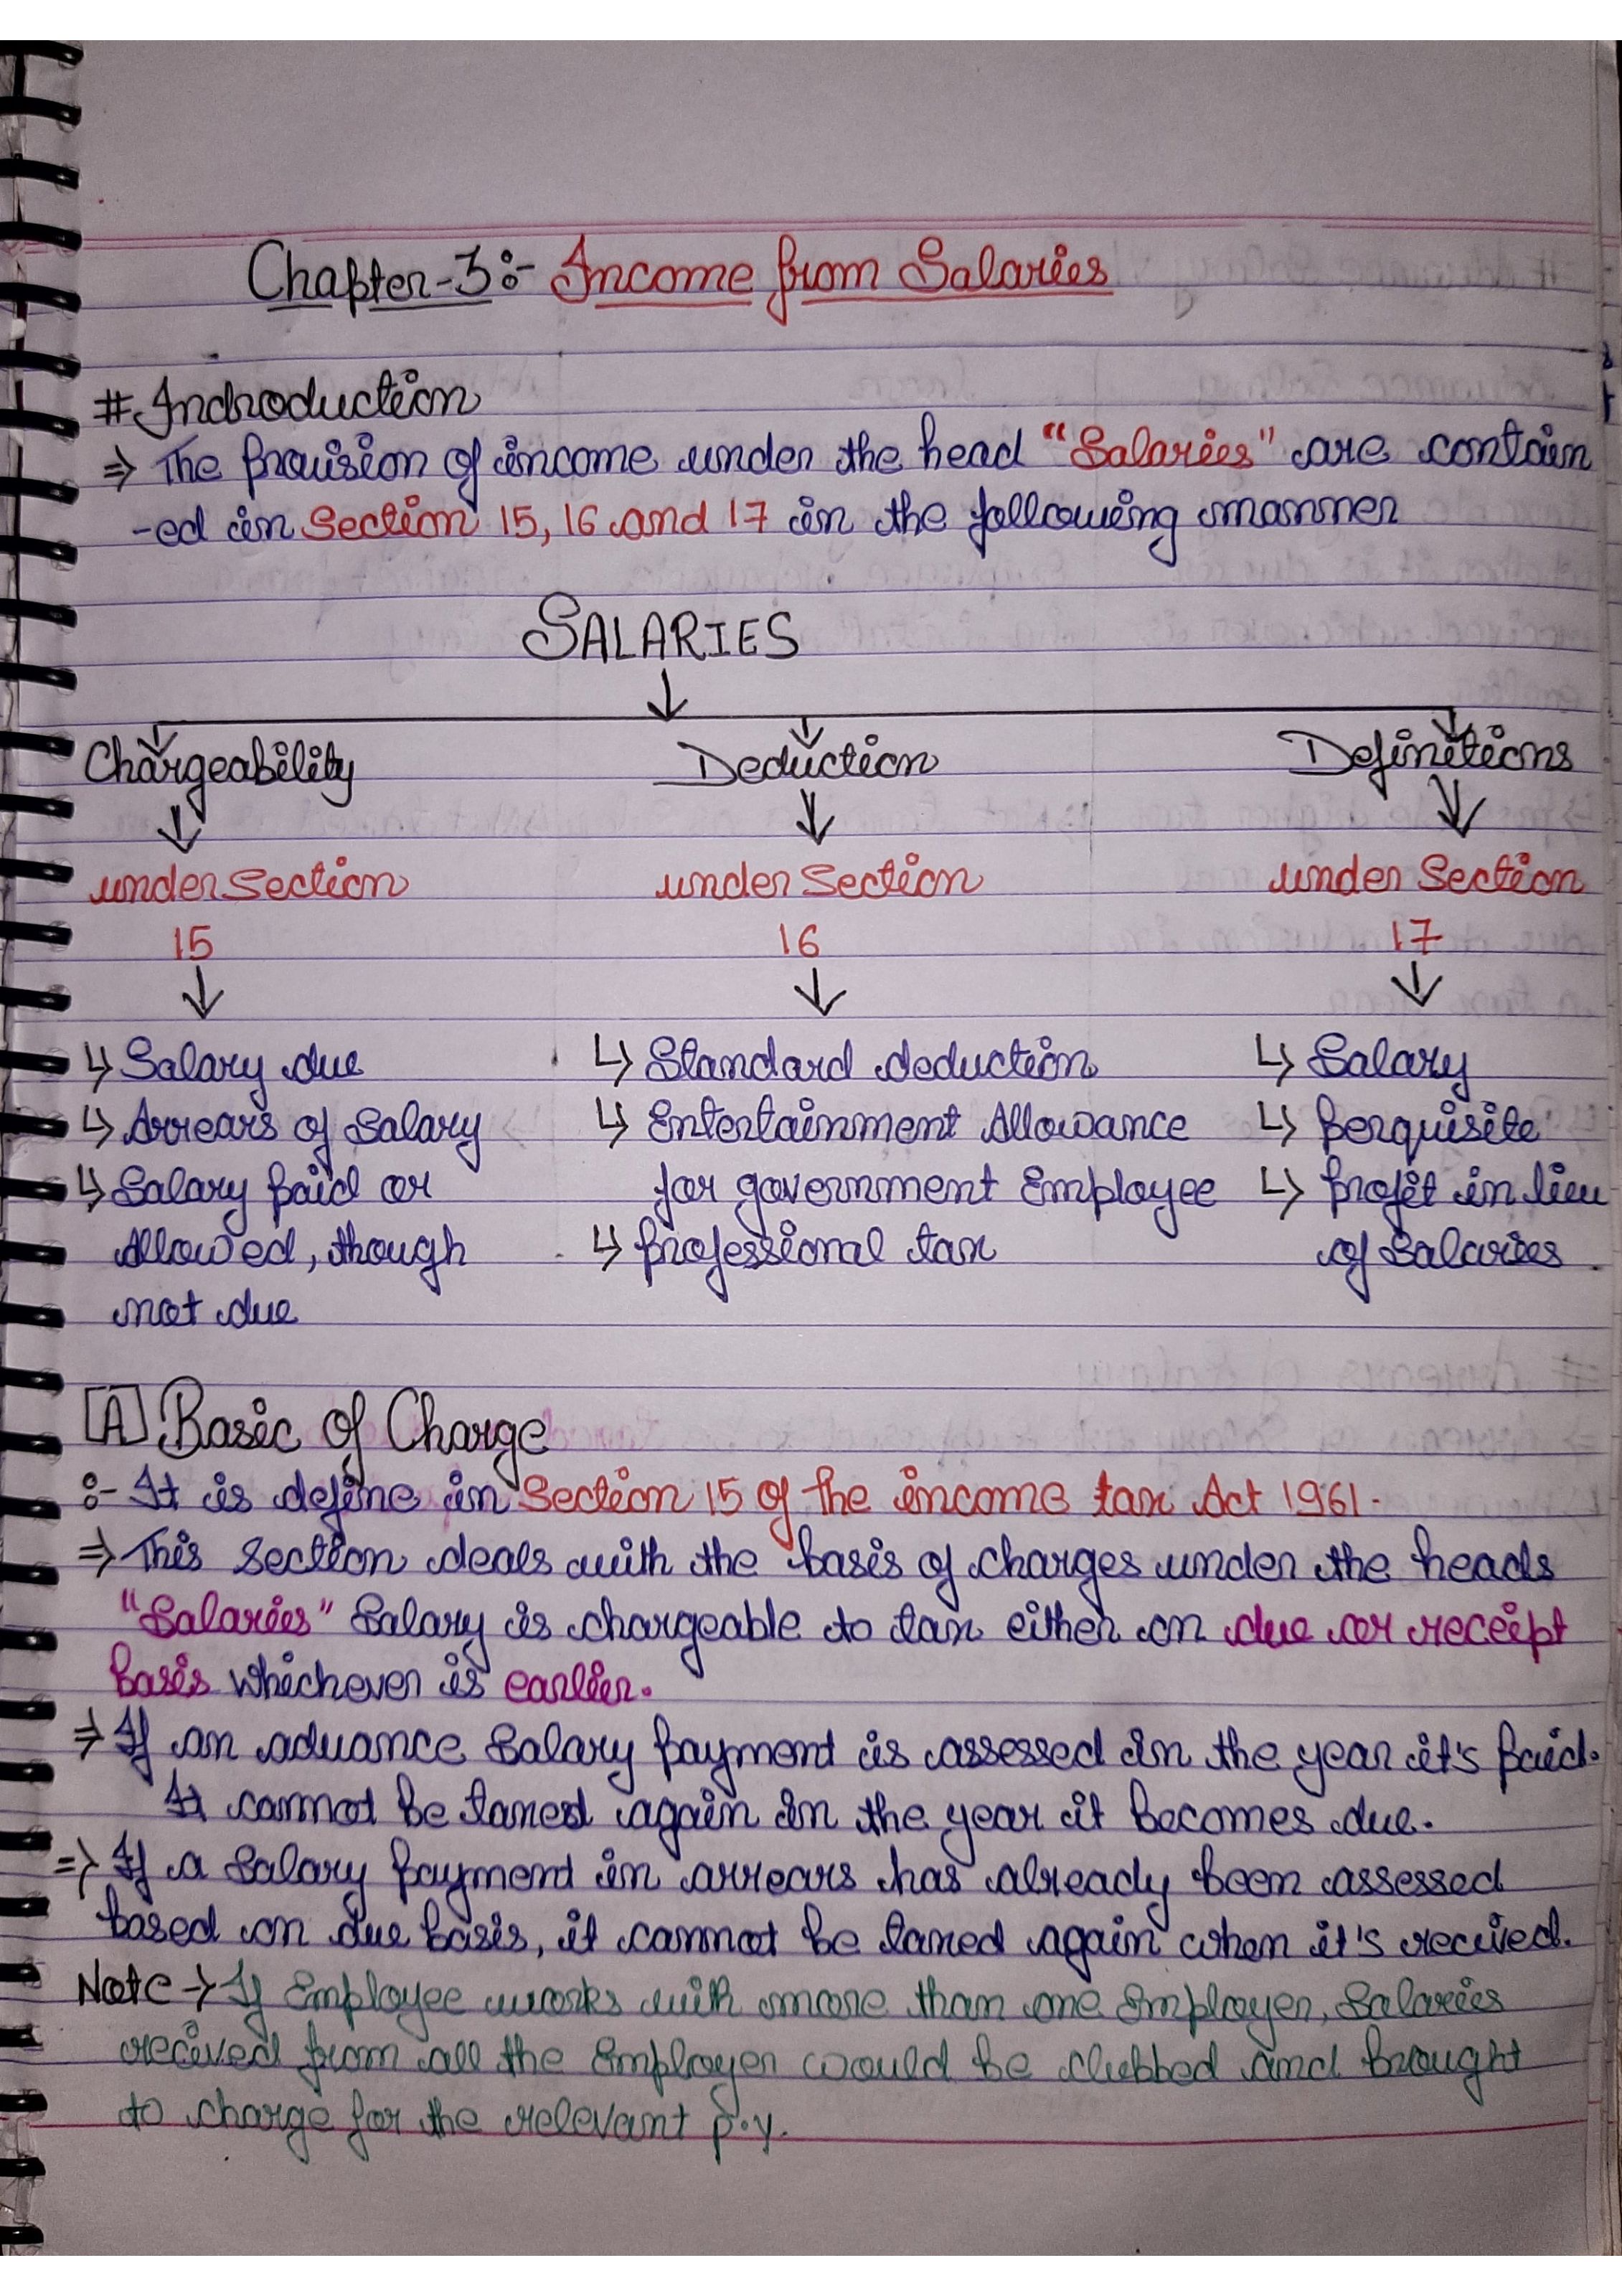 Chapter-3:- Income from Salaries
# Indroduction
⇒ The provision of income under the head "Salaries" are contain
-ed in Section 15, 16 and 17 in the following manner
SALARIES
Chargeability Deduction Definitions
under Section under Section under Section
15 16 17
↳ Salary due ↳ Standard deduction ↳ Salary
↳ Arrears of Salary ↳ Entertainment Allowance ↳ Perquisite
↳ Salary paid or for government Employee ↳ Profit in lieu
Allowed, though ↳ Professional tax of Salaries
not due
[A] Basic of Charge
:- It is define in Section 15 of the income tax Act 1961.
⇒ This Section deals with the basis of charges under the heads
"Salaries" Salary is chargeable to tax either on due or receipt
basis whichever is earlier.
⇒ If an advance Salary payment is assessed in the year it's paid.
It cannot be taxed again in the year it becomes due.
⇒ If a Salary payment in arrears has already been assessed
based on due basis, it cannot be taxed again when it's recived.
Note → If Employee works with more than one Employer, Salaries
recived from all the Employer would be clubbed and brought
to charge for the relevant p.y.